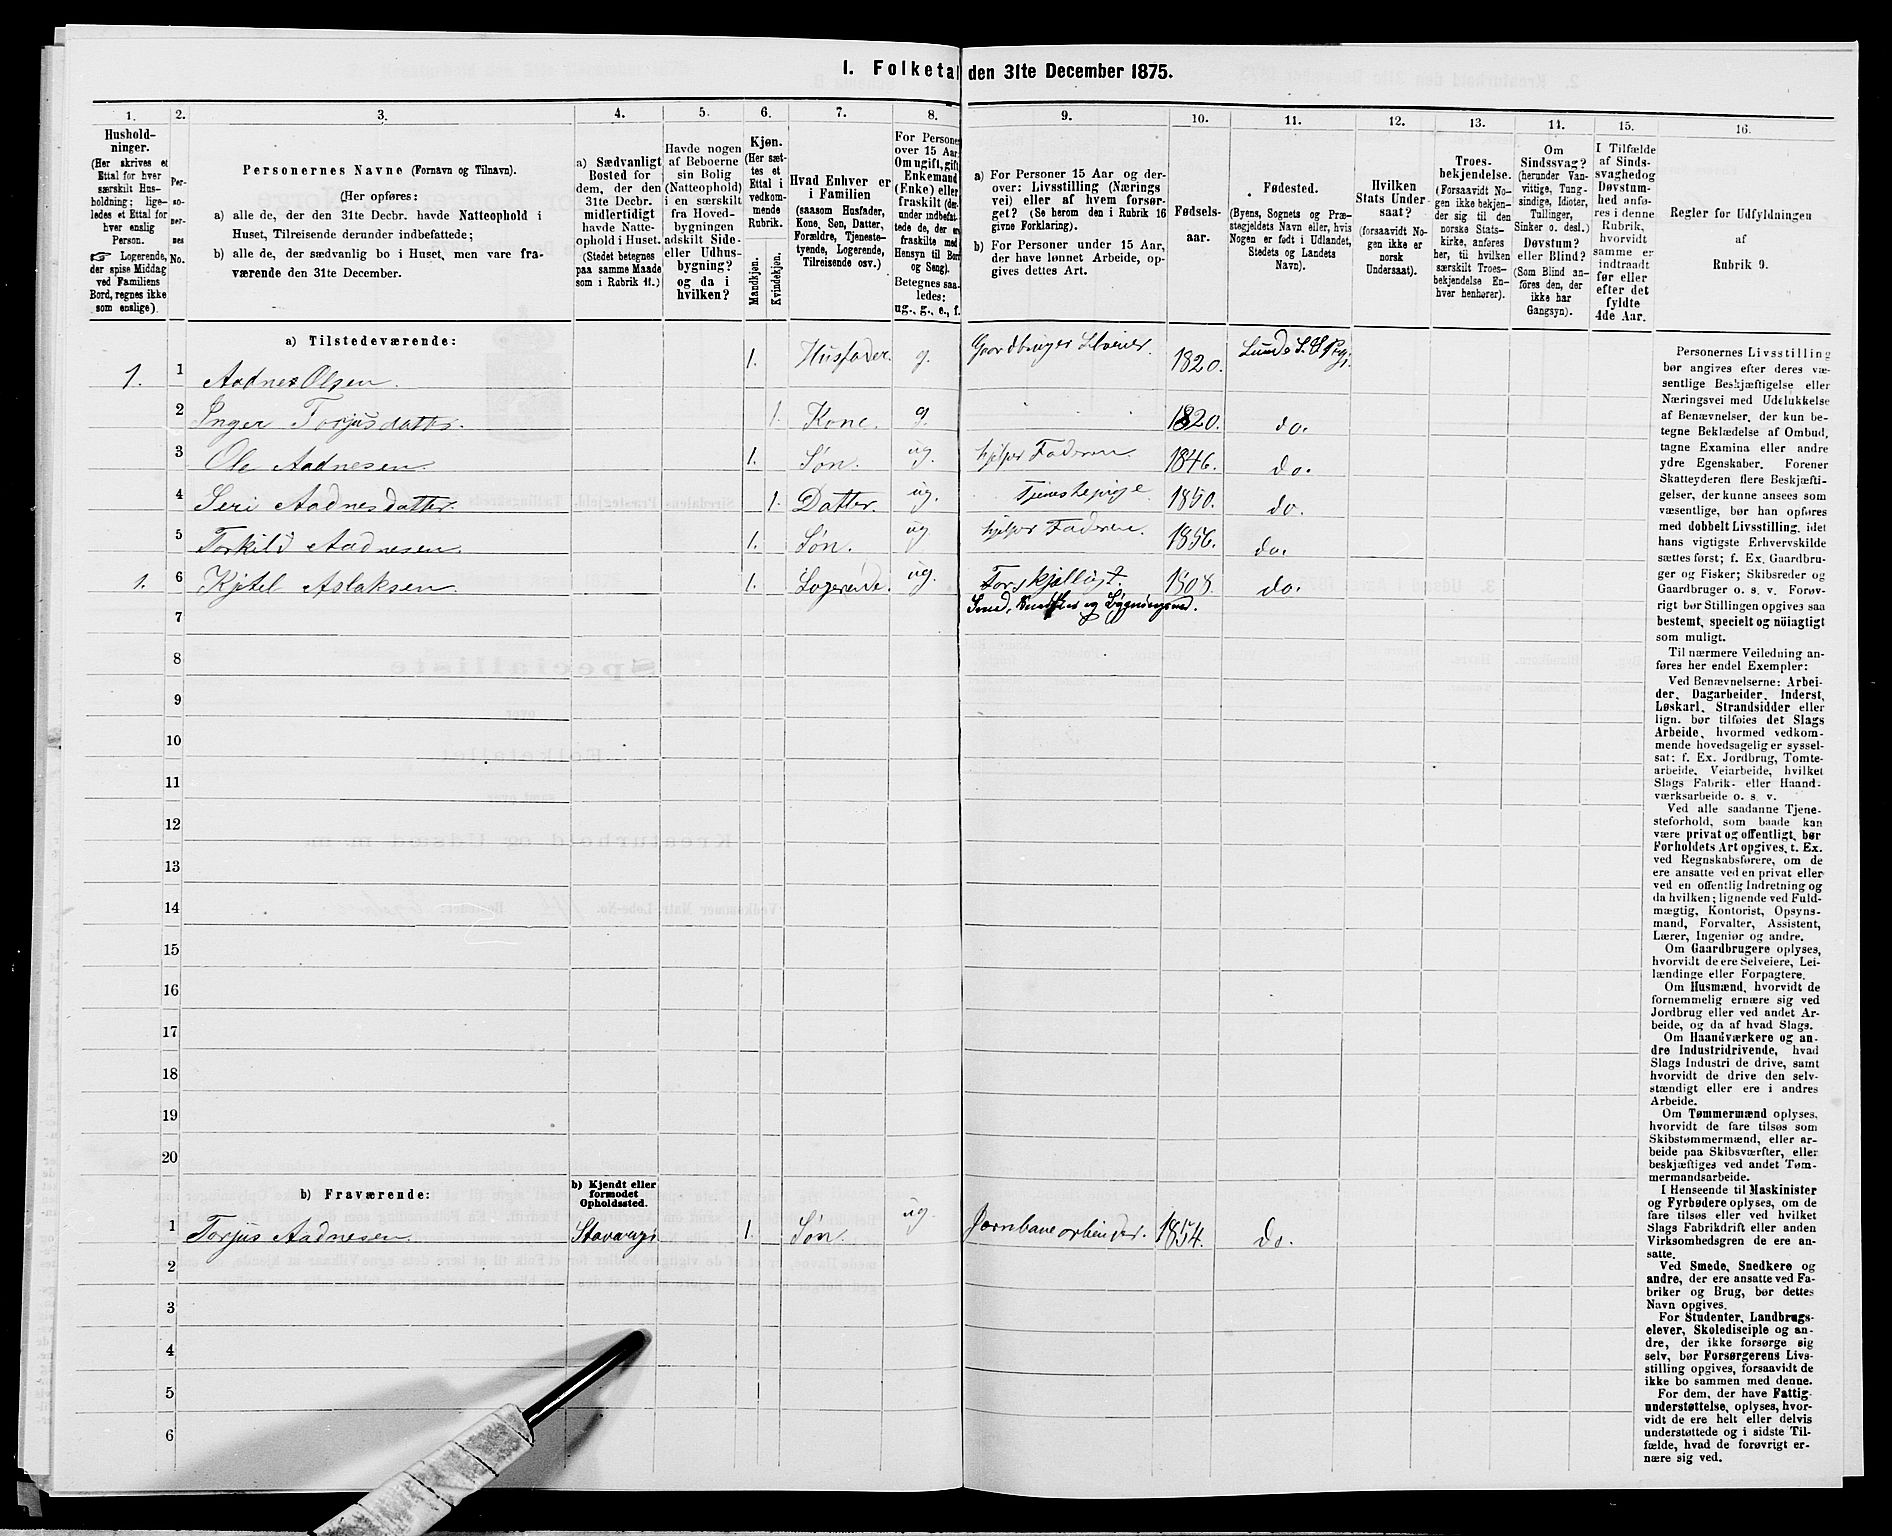 I. Folketal den 31te December 1875.
1.
Hushold-
ninger.
(Her skrives et
Ettal for hver
særskilt Hus-
holdning; lige-
ledes et Ettal for
hver enslig
Person.
☞ Logerende,
der spise Middag
ved Familiens
Bord, regnes ikke
som enslige).
2.
Per-
so-
ner-
nes
No.
3.
Personernes Navne (Fornavn og Tilnavn).
(Her opføres:
a) alle de, der den 31te Decbr. havde Natteophold i
Huset, Tilreisende derunder indbefattede;
b) alle de, der sædvanlig bo i Huset, men vare fra-
værende den 31te December.
4.
a) Sædvanligt
Bosted for
dem, der den
31te Decbr.
midlertidigt
havde Natte-
ophold i Huset.
(Stedet betegnes
paa samme Maade
som i Rubrik 11.)
5.
Havde nogen
af Beboerne
sin Bolig
(Natteophold)
i en særskilt
fra Hoved-
bygningen
adskilt Side-
eller Udhus-
bygning?
og da i
hvilken?
6.
Kjøn.
(Her sæt-
tes et
Ettal i
vedkom-
mende
Rubrik.
Mandkjøn.
Kvindekjøn.
7.
Hvad Enhver er
i Familien
(saasom Husfader,
Kone, Søn, Datter,
Forældre, Tjeneste-
tyende, Logerende,
Tilreisende osv.)
8.
For Persone
over 15 Aar
Om ugift, gift
Enkemand
(Enke) eller
fraskilt (der-
under indbefat-
tede de, der er
fraskilte med
Hensyn til Bord
og Seng).
Betegnes saa-
ledes:
ug., g., e., f.
9.
a) For Personer 15 Aar og der-
over: Livsstilling (Nærings
vei) eller af hvem forsør-
get? (Se herom den i Rubrik 16
givne Forklaring).
b) For Personer under 15 Aar,
der have lønnet Arbeide, op-
gives dettes Art.
10.
Fødsels-
aar.
11.
Fødested.
(Byens, Sognets og Præ-
stegjeldets Navn eller, hvis
Nogen er født i Udlandet,
Stedets og Landets
Navn).
12.
Hvilken
Stats Under-
saat?
(forsaavidt No-
gen ikke er
norsk
Undersaat).
13.
Troes-
bekjendelse.
(Forsaavidt No-
gen ikke bekjen-
der sig til den
norske Stats-
kirke, anføres
her, til hvilken
særskilt Troes-
bekjendelse En-
hver henhører).
14.
Om
Sindssvag?
(herunder Van-
vittige, Tung-
sindige, Idioter,
Tullinger,
Sinker o. desl.)
Døvstum?
eller Blind?
(Som Blind an-
føres den, der
ikke har
Gangsyn).
15.
I Tilfælde
af Sinds-
svaghed og
Døvstum-
hed anfø-
res i denne
Rubrik,
hvorvidt
samme er
indtraadt
før eller
efter det
fyldte
4de Aar.
16.
Regler for Udfyldningen
af
Rubrik 9.
a) Tilstedeværende:
1. 1 Aadnes Olsen. 1. Husfader g. Gaardbruger Selveier. 1820. Lunde S.
2 Inger Torjusdatter. 1. Kone. g. 1820. do.
3 Ole Aadnesen. 1. Søn. ug. hjelper Faderen. 1846. do.
4 Seri Aadnesdatter. 1. Datter. ug. Tjenestepige. 1850. do.
5 Torkild Aadnesen. 1. Søn. ug hjelper Faderen. 1856. do.
1. 6 Kjetel Aslaksen 1. Logerende. ug. Forskjelligt. 1808. do.
7 Smed, Snedker og
8
9
10
11
12
13
14
15
16
17
18
19
20
b) Fraværende:
b) Kjendt eller
formodet
Opholdssted.
1 Torjus Aadnesen. Stavanger 1. Søn. ug. Jernbanearbeider. 1854. do.
2
3
4
5
6
Personernes Livsstilling
bør angives efter deres væ-
sentlige Beskjæftigelse eller
Næringsvei med Udelukkelse
af Benævnelser, der kun be-
tegne Beklædelse af Ombud,
tagne Examina eller andre
ydre Egenskaber. Forener
Skatteyderen flere Beskjæfti-
gelser, der kunne ansees som
væsentlige, bør han opføres
med dobbelt Livsstilling, idet
hans vigtigste Erhvervskilde
sættes først; f. Ex. Gaardbru-
ger og Fisker; Skibsreder og
Gaardbruger o. s. v. Forøv-
rigt bør Stillingen opgives saa
bestemt, specielt og nöiagtigt
som muligt.
Til nærmere Veiledning an-
føres her endel Exempler:
Ved Benævnelserne: Arbei-
der, Dagarbeider, Inderst,
Løskarl, Strandsidder eller
lign. bør tilføies det Slags
Arbeide, hvormed vedkom-
mende hovedsagelig er syssel-
sat: f. Ex. Jordbrug, Tomte-
arbeide, Veiarbeide, hvilket
Slags Fabrik- eller Haand-
værksarbeide o. s. v.
Ved alle saadanne Tjene-
steforhold, som baade kan
være privat og offentligt, bør
Forholdets Art opgives, t. Ex.
ved Regnskabsførere, om de
ere ansatte ved en privat eller
ved en offentlig Indretning og
da hvilken; lignende ved Fuld-
mægtig, Kontorist, Opsyns-
mand, Forvalter, Assistent,
Lærer, Ingeniør og andre.
Om Gaardbrugere oplyses,
hvorvidt de ere Selveiere, Lei-
lændinge eller Forpagtere.
Om Husmænd, hvorvidt de
fornemmelig ernære sig ved
Jordbrug eller ved andet Ar-
beide, og da af hvad Slags.
Om Haandværkere og an-
dre Industridrivende, hvad
Slags Industri de drive, samt
hvorvidt de drive den selv-
stændigt eller ere i andres
Arbeide.
Om Tømmermænd oplyses,
hvorvidt de fare tilsøs som
Skibstømmermænd, eller ar-
beide paa Skibsværfter, eller
beskjæftiges ved andet Tøm-
mermandsarbeide.
I Henseende til Maskinister
og Fyrbødere oplyses, om de
fare tilsøs eller ved hvilket
Slags Fabrikdrift eller anden
Virksomhedsgren de ere an-
satte.
Ved Smede, Snedkere og
andre, der ere ansatte ved Fa-
briker og Brug, bør dettes
Navn opgives.
For Studenter, Landbrugs-
elever, Skoledisciple og an-
dre, der ikke forsørge sig
selv, bør Forsørgerens Livs-
stilling opgives, forsaavidt de
ikke bo sammen med denne.
For dem, der have Fattig-
understøttelse, oplyses, hvor-
vidt de ere helt eller delvis
understøttede og i sidste Til-
fælde, hvad de forøvrigt er-
nære sig ved.